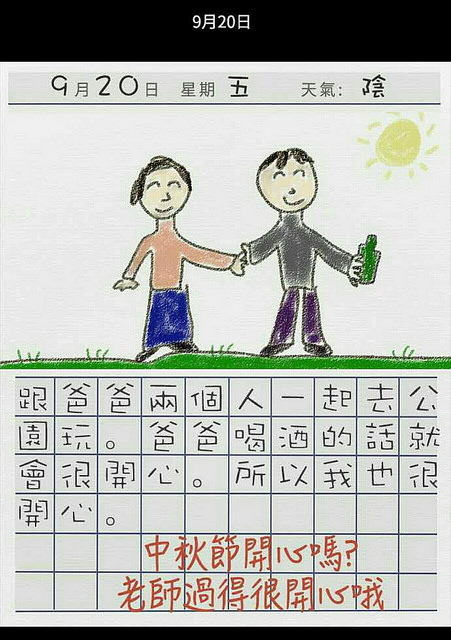 9月20日
9月20日 星期 五 天氣: 陰
跟爸爸兩個人一起去公
園玩。爸爸喝酒的話就
會很開心。所以我也很
開心。
中秋節開心嗎?
老師過得很開心哦